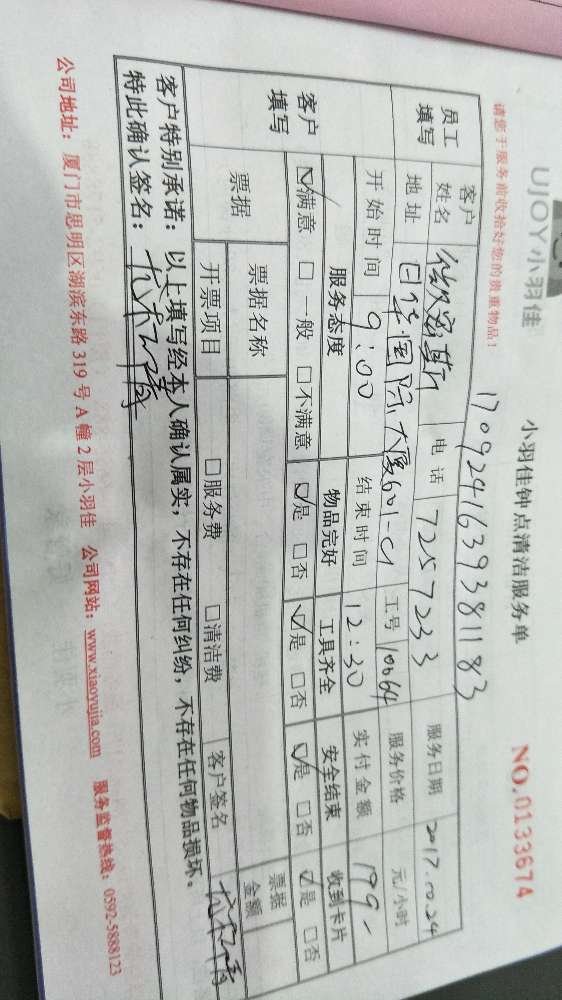 UJOY小羽佳 小羽佳钟点清洁服务单 NO.0133674
请您于服务前收拾好您的贵重物品！ 17092416393811183
员工填写 客户姓名 电话 7257233 服务日期 2017.10.24
地址 日华国际大厦601-C1 工号 10664 服务价格 元/小时
开始时间 9:00 结束时间 12:30 实付金额 199-
客户填写 服务态度 物品完好 工具齐全 安全结束 收到卡片
☑满意 □一般 □不满意 ☑是 □否 ☑是 □否 ☑是 □否 ☑是 □否
票据 票据名称 票据金额
开票项目 □服务费 □清洁费 客户签名
客户特别承诺：以上填写经本人确认属实，不存在任何纠纷，不存在任何物品损坏。
特此确认签名：
公司地址：厦门市思明区湖滨东路319号A幢2层小羽佳 公司网站：www.xiaoyujia.com 服务监督热线：0592-5888123